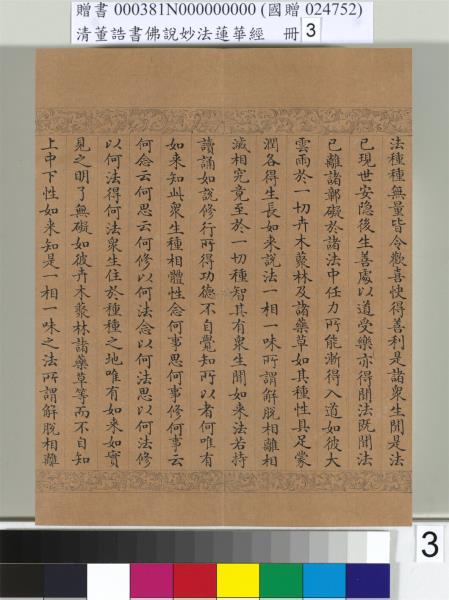 贈書 000381N000000000 (國贈 024752)
清董誥書佛說妙法蓮華經 冊 3
法種種無量皆令歡喜快得善利是諸衆生聞是法
已現世安隐後生善處以道受樂亦得聞法既聞法
已離諸鄣礙於諸法中任力所能漸得入道如彼大
雲雨於一切卉木藂林及諸藥草如其種性具足蒙
潤各得生長如来說法一相一味所謂解脫相離相
滅相究竟至於一切種智其有衆生聞如来法若持
讀誦如說修行所得功德不自覺知所以者何唯有
如来知此衆生種相體性念何事思何事修何事云
何念云何思云何修以何法念以何法思以何法修
以何法得何法衆生住於種種之地唯有如来如實
見之明了無礙如彼卉木藂林諸藥草等而不自知
上中下性如来知是一相一味之法所謂解脫相離
3